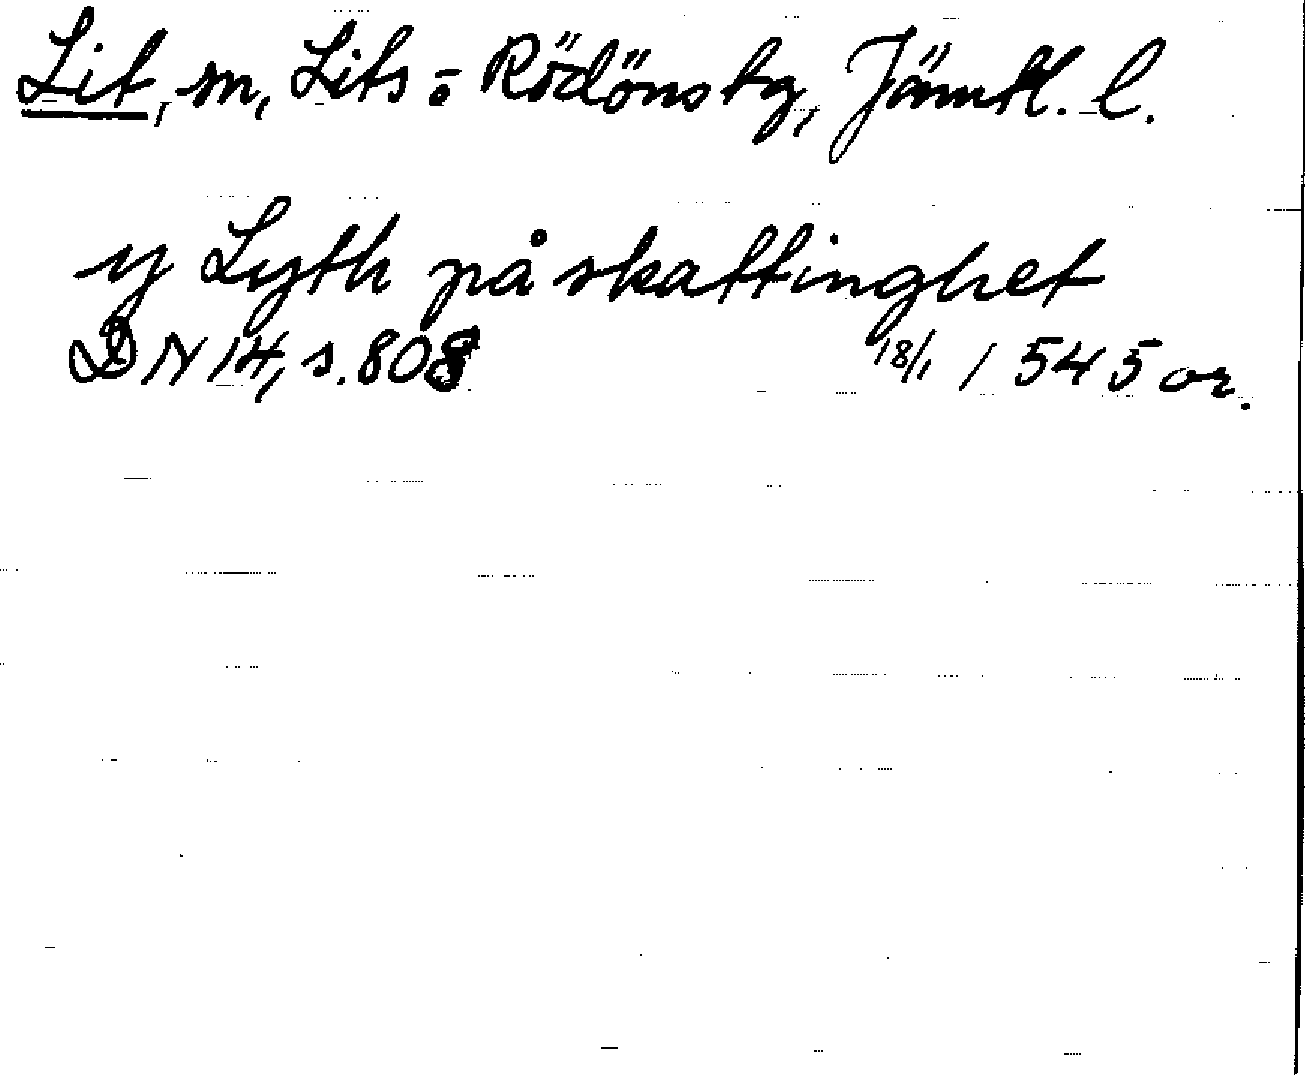 Lit, sn, Lits o. Rödöns tg, Jämtl. l.
y Lyth på skattinghet
DN 14, s. 808 18/1 1545 or.